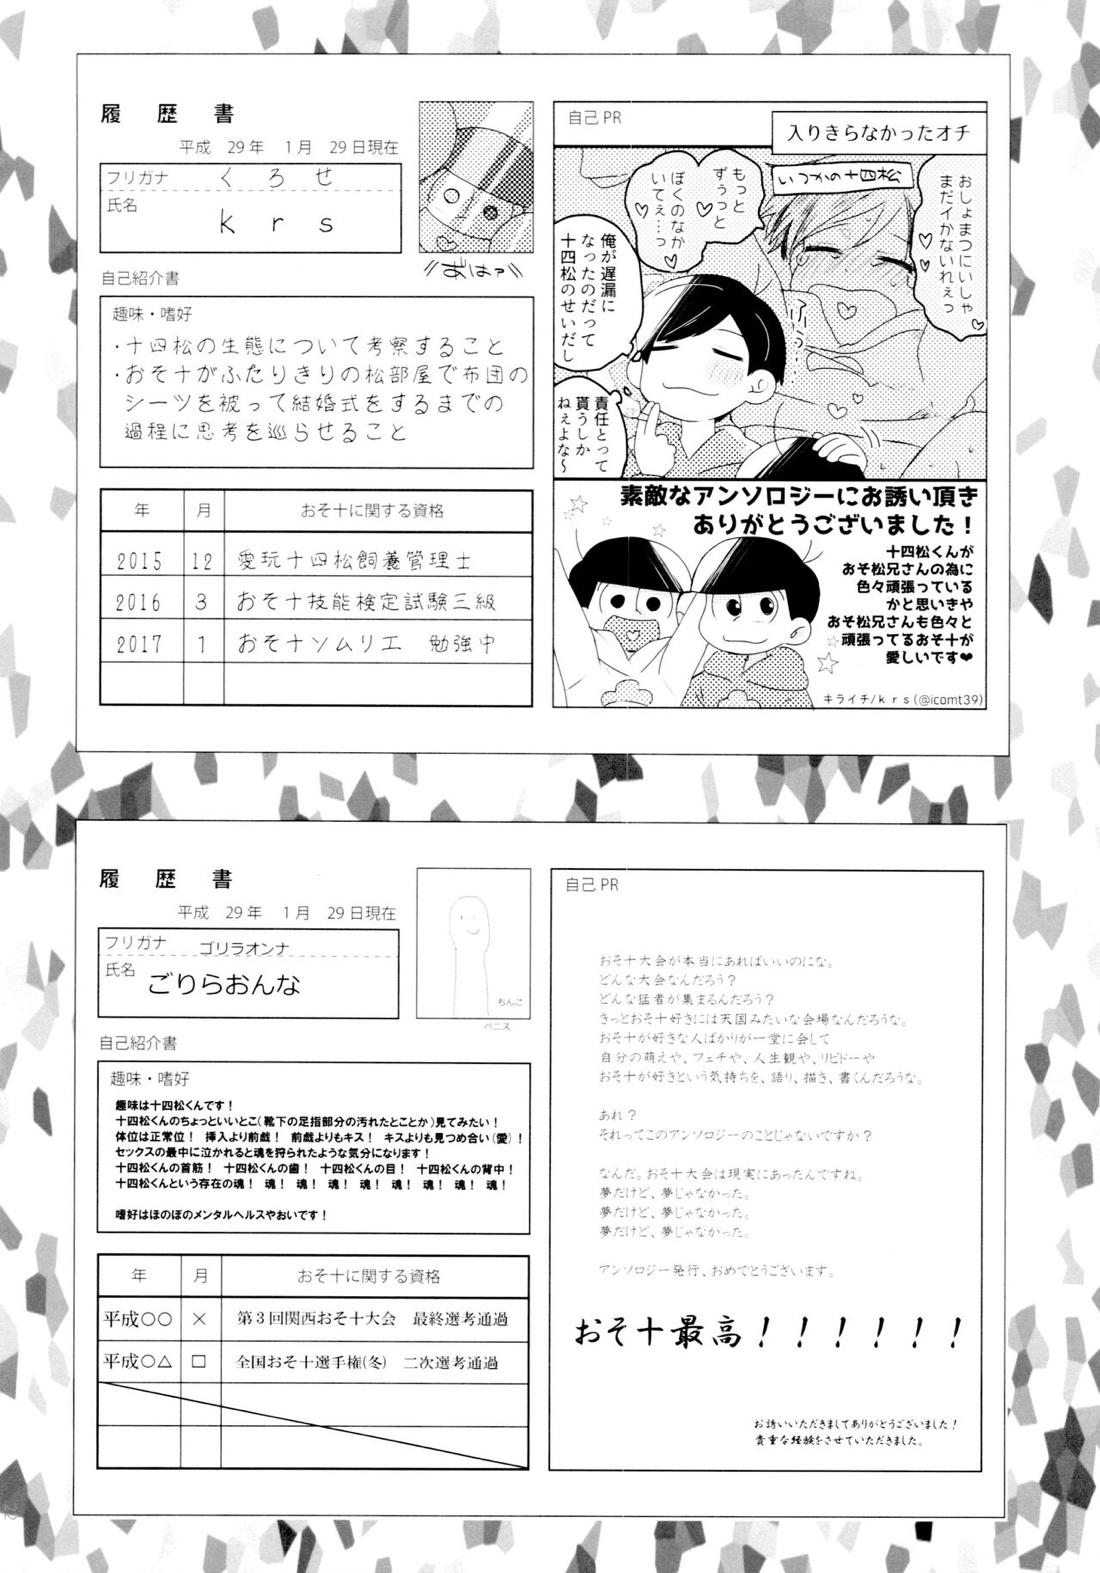 履歴書
平成 29年 1月 29日現在
フリガナ くろせ
氏名 krs
自己紹介書
趣味・嗜好
・十四松の生態について考察すること
・おそ十がふたりきりの松部屋で布団の
シーツを被って結婚式をするまでの
過程に思考を巡らせること
年 月 おそ十に関する資格
2015 12 愛玩十四松飼養管理士
2016 3 おそ十技能検定試験三級
2017 1 おそ十ソムリエ 勉強中
自己PR
入りきらなかったオチ
いつかの十四松
おしょまつにいしゃ
まだイかないれぇっ
もっと
ずぅっと
ぼくのなか
いてぇ…っ
俺が遅漏に
なったのだって
十四松のせいだし
責任とって
貰うしか
ねぇよな〜
素敵なアンソロジーにお誘い頂き
ありがとうございました！
十四松くんが
おそ松兄さんの為に
色々頑張っている
かと思いきや
おそ松兄さんも色々と
頑張ってるおそ十が
愛しいです❤
キライチ/krs(@icomt39)
履歴書
平成 29年 1月 29日現在
フリガナ ゴリラオンナ
氏名 ごりらおんな
ちんこ
ペニス
自己紹介書
趣味・嗜好
趣味は十四松くんです！
十四松くんのちょっといいとこ（靴下の足指部分の汚れたとことか）見てみたい！
体位は正常位！ 挿入より前戯！ 前戯よりもキス！ キスよりも見つめ合い（愛）！
セックスの最中に泣かれると魂を狩られたような気分になります！
十四松くんの首筋！ 十四松くんの歯！ 十四松くんの目！ 十四松くんの背中！
十四松くんという存在の魂！ 魂！ 魂！ 魂！ 魂！ 魂！ 魂！ 魂！ 魂！
嗜好はほのぼのメンタルヘルスやおいです！
年 月 おそ十に関する資格
平成○○ × 第3回関西おそ十大会 最終選考通過
平成○△ □ 全国おそ十選手権(冬) 二次選考通過
自己PR
おそ十大会が本当にあればいいのにな。
どんな大会なんだろう？
どんな猛者が集まるんだろう？
きっとおそ十好きには天国みたいな会場なんだろうな。
おそ十が好きな人ばかりが一堂に会して
自分の萌えや、フェチや、人生観や、リビドーや
おそ十が好きという気持ちを、語り、描き、書くんだろうな。
あれ？
それってこのアンソロジーのことじゃないですか？
なんだ。おそ十大会は現実にあったんですね。
夢だけど、夢じゃなかった。
夢だけど、夢じゃなかった。
夢だけど、夢じゃなかった。
アンソロジー発行、おめでとうございます。
おそ十最高！！！！！！
お誘いいただきましてありがとうございました！
貴重な経験をさせていただきました。